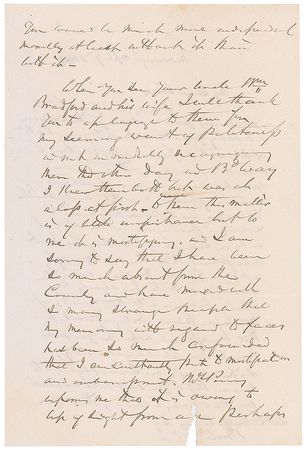 You would be much more independent
morally at least without it than
with it—
When you see your Uncle Wm
Bradford and his wife I will thank
you to apologize to them for
my seeming want of Politeness
in not immediately recognizing
them the other day in B'way
I knew them both but was at
a loss at first— to them this matter
is of little importance but to
me it is mortifying. and I am
sorry to say that I have been
so much absent from the
Country and have mixed with
so many strange People that
my memory with regard to faces
has been so much confounded
that I am constantly put to mortification
and embarrassment. Mr
informs me this it is owing to
of sight from age Perhaps